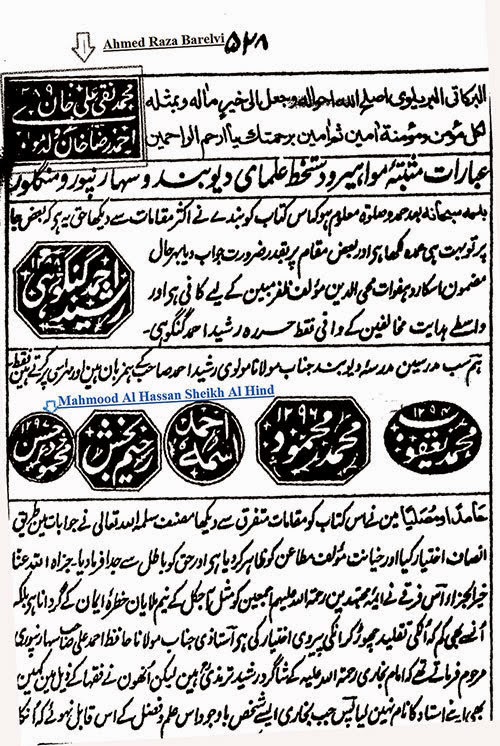 Ahmed Raza Barelvi ۵۲۸
محمد نقی علی خان
احمد رضا خان
البرکاتی البریلوی اصلح الله احواله وجعل الی خیر ماله وبمثله
لکل مؤمن ومؤمنة امین ثم امین برحمتك یا ارحم الراحمین
عبارات مثبتۂ مواہیر و دستخط علمای دیوبند و سہارنپور و منگلور
بسمہ سبحانہ بعد حمد و صلوٰۃ معلوم ہو کہ اس کتاب کو بندے نے اکثر مقامات سے دیکھا حق یہ ہی کہ بعض جا
پر تو بہت ہی عمدہ لکھا ہی اور بعض مقام پر بقدر ضرورت جواب دیا بہر حال
مضمون اسکا رد ہفوات محی الدین مؤلف ظفر مبین کے لیے کافی ہی اور
واسطے ہدایت مخالفین کے وافی فقط حررہ رشید احمد گنگوہی۔
رشید احمد گنگوہی
ہم سب مدرسین مدرسۂ دیوبند جناب مولانا مولوی رشید احمد صاحب کے ہمزبان ہین اور مہر اسی پر کرتے ہین فقط
Mahmood Al Hassan Sheikh Al Hind
محمد یعقوب
محمد محمود ۱۲۹۶
اسمہ احمد
رحیم بخش
محمود حسن
حامدًا ومصلیًا مین نے اس کتاب کو مقامات متفرق سے دیکھا مصنف سلمہ اللہ تعالی نے جوابات مین طریق
انصاف اختیار کیا اور خیانت مؤلف مطاعن کو ظاہر کر دیا ہی اور حق کو باطل سے جدا فرما دیا۔ جزاہ اللہ عنا
خیر الجزاء اس فرقے نے ایمۂ مجتہدین رحمۃ اللہ علیہم اجمعین کو مثل آجکل کے نیم ملایان خطرۂ ایمان کے گردانا ہی بلکہ
انسے بھی کم کہ انکی تقلید چھوڑ کر انکی پیروی اختیار کی ہی استاذی جناب مولانا حافظ احمد علی صاحب سہارنپوری
مرحوم فرماتے تھے کہ امام بخاری رحمۃ اللہ علیہ کے شاگرد رشید ترمذی ہین لیکن انھون نے فقہا کے ذیل مین کہین
بھی اپنے استاد کا نام نہین لیا پس جب بخاری ایسے شخص باوجود اس علم و فضل کے اس قابل نہوئے کہ انکا